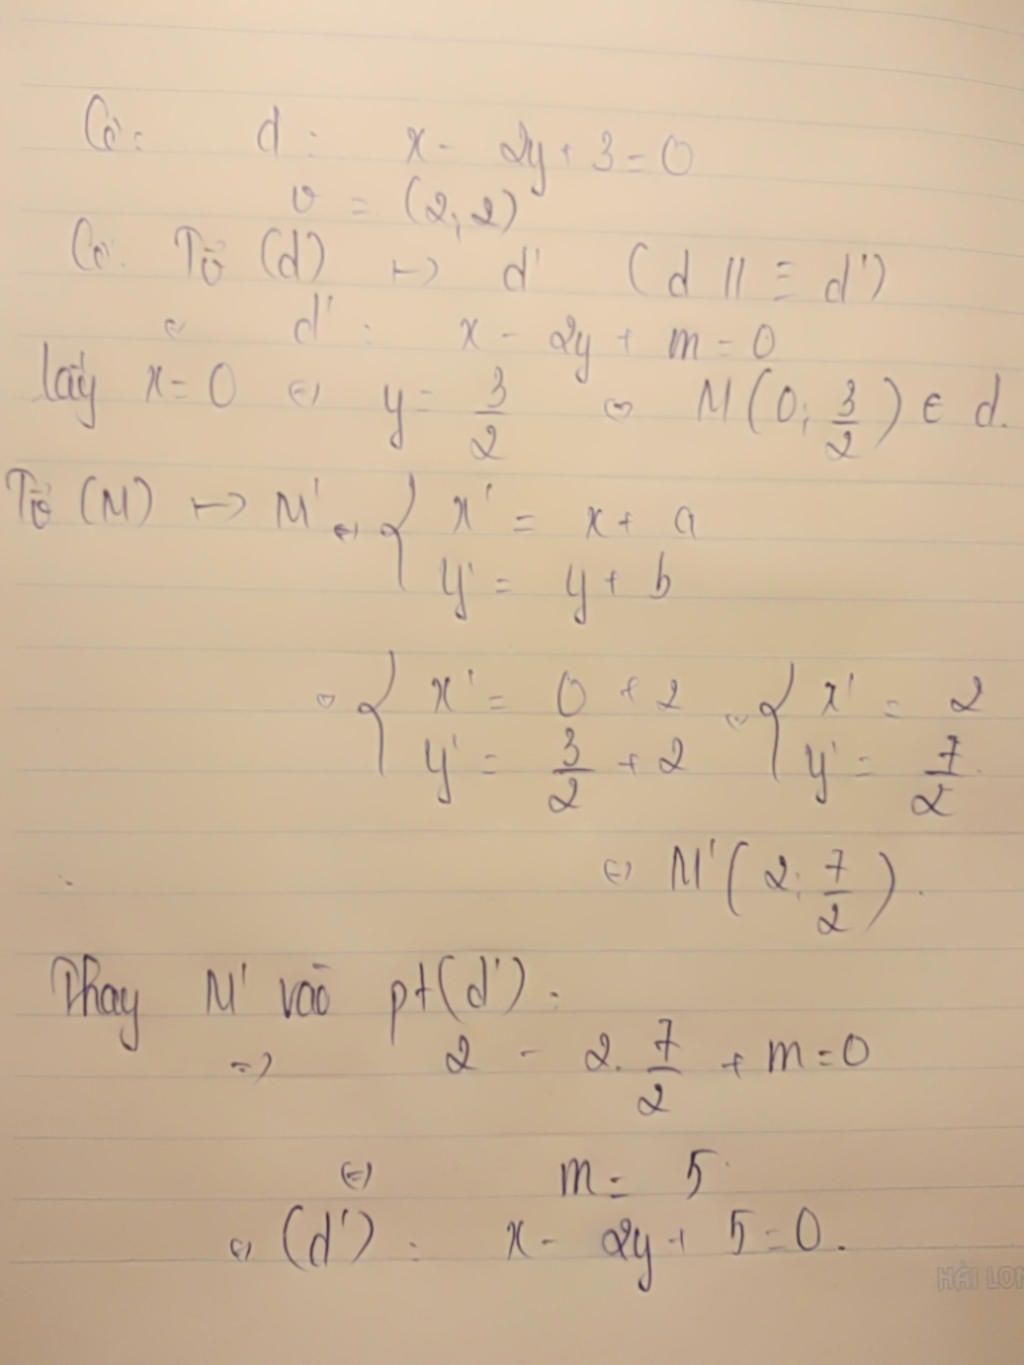 Có: d: x - 2y + 3 = 0
v = (2; 2)
Có: Tv̄ (d) ↦ d' (d // ≡ d')
⇔ d': x - 2y + m = 0
lấy x = 0 ⇔ y = 3/2 ⇔ M(0; 3/2) ∈ d.
Tv̄ (M) ↦ M' ⇔ { x' = x + a
y' = y + b
⇔ { x' = 0 + 2 ⇔ { x' = 2
y' = 3/2 + 2 y' = 7/2
⇔ M'(2; 7/2).
Thay M' vào pt(d'):
=> 2 - 2. 7/2 + m = 0
⇔ m = 5
⇔ (d'): x - 2y + 5 = 0.
HẢI LON